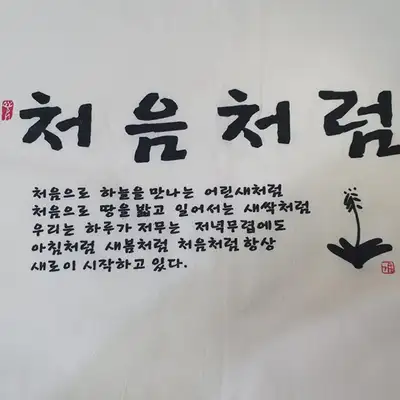 처음처럼
처음으로 하늘을 만나는 어린새처럼
처음으로 땅을 밟고 일어서는 새싹처럼
우리는 하루가 저무는 저녁무렵에도
아침처럼 새봄처럼 처음처럼 항상
새로이 시작하고 있다.